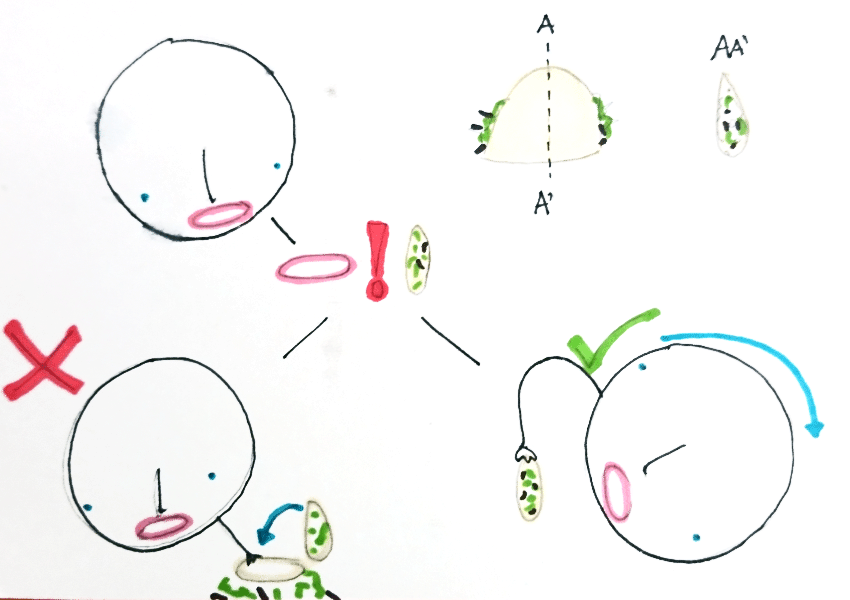 A
A'
AA'
!